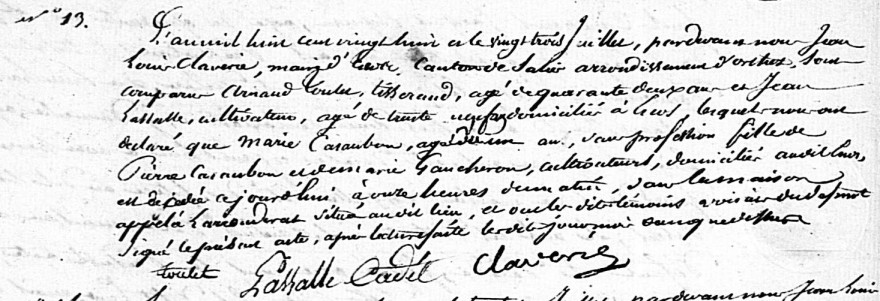 N° 13.
L'an mil huit cent vingt huit et le vingt trois Juillet, pardevant nous Jean
Louis Claverie, maire d' canton de Salies arrondissement d'orthez, sont
comparus Arnaud Loulet, tisserand, agé de quarante deux ans et Jean
Lassalle, cultivateur, agé de trente domicilié à lesquels nous ont
declaré que Marie Casaubon, agée d'un an, sans profession fille de
Pierre Casaubon et de marie Gaucheron, cultivateurs, domiciliés audit lieu,
est decedée aujourd'hui à onze heures du matin, dans la maison
appelée située audit lieu, et ont les dits témoins avis des mot
signé le présent acte, après lecture faite le dit jour mois et an que dessus
toulet Lassalle Cadet Claverie
pardevant nous Jean Louis